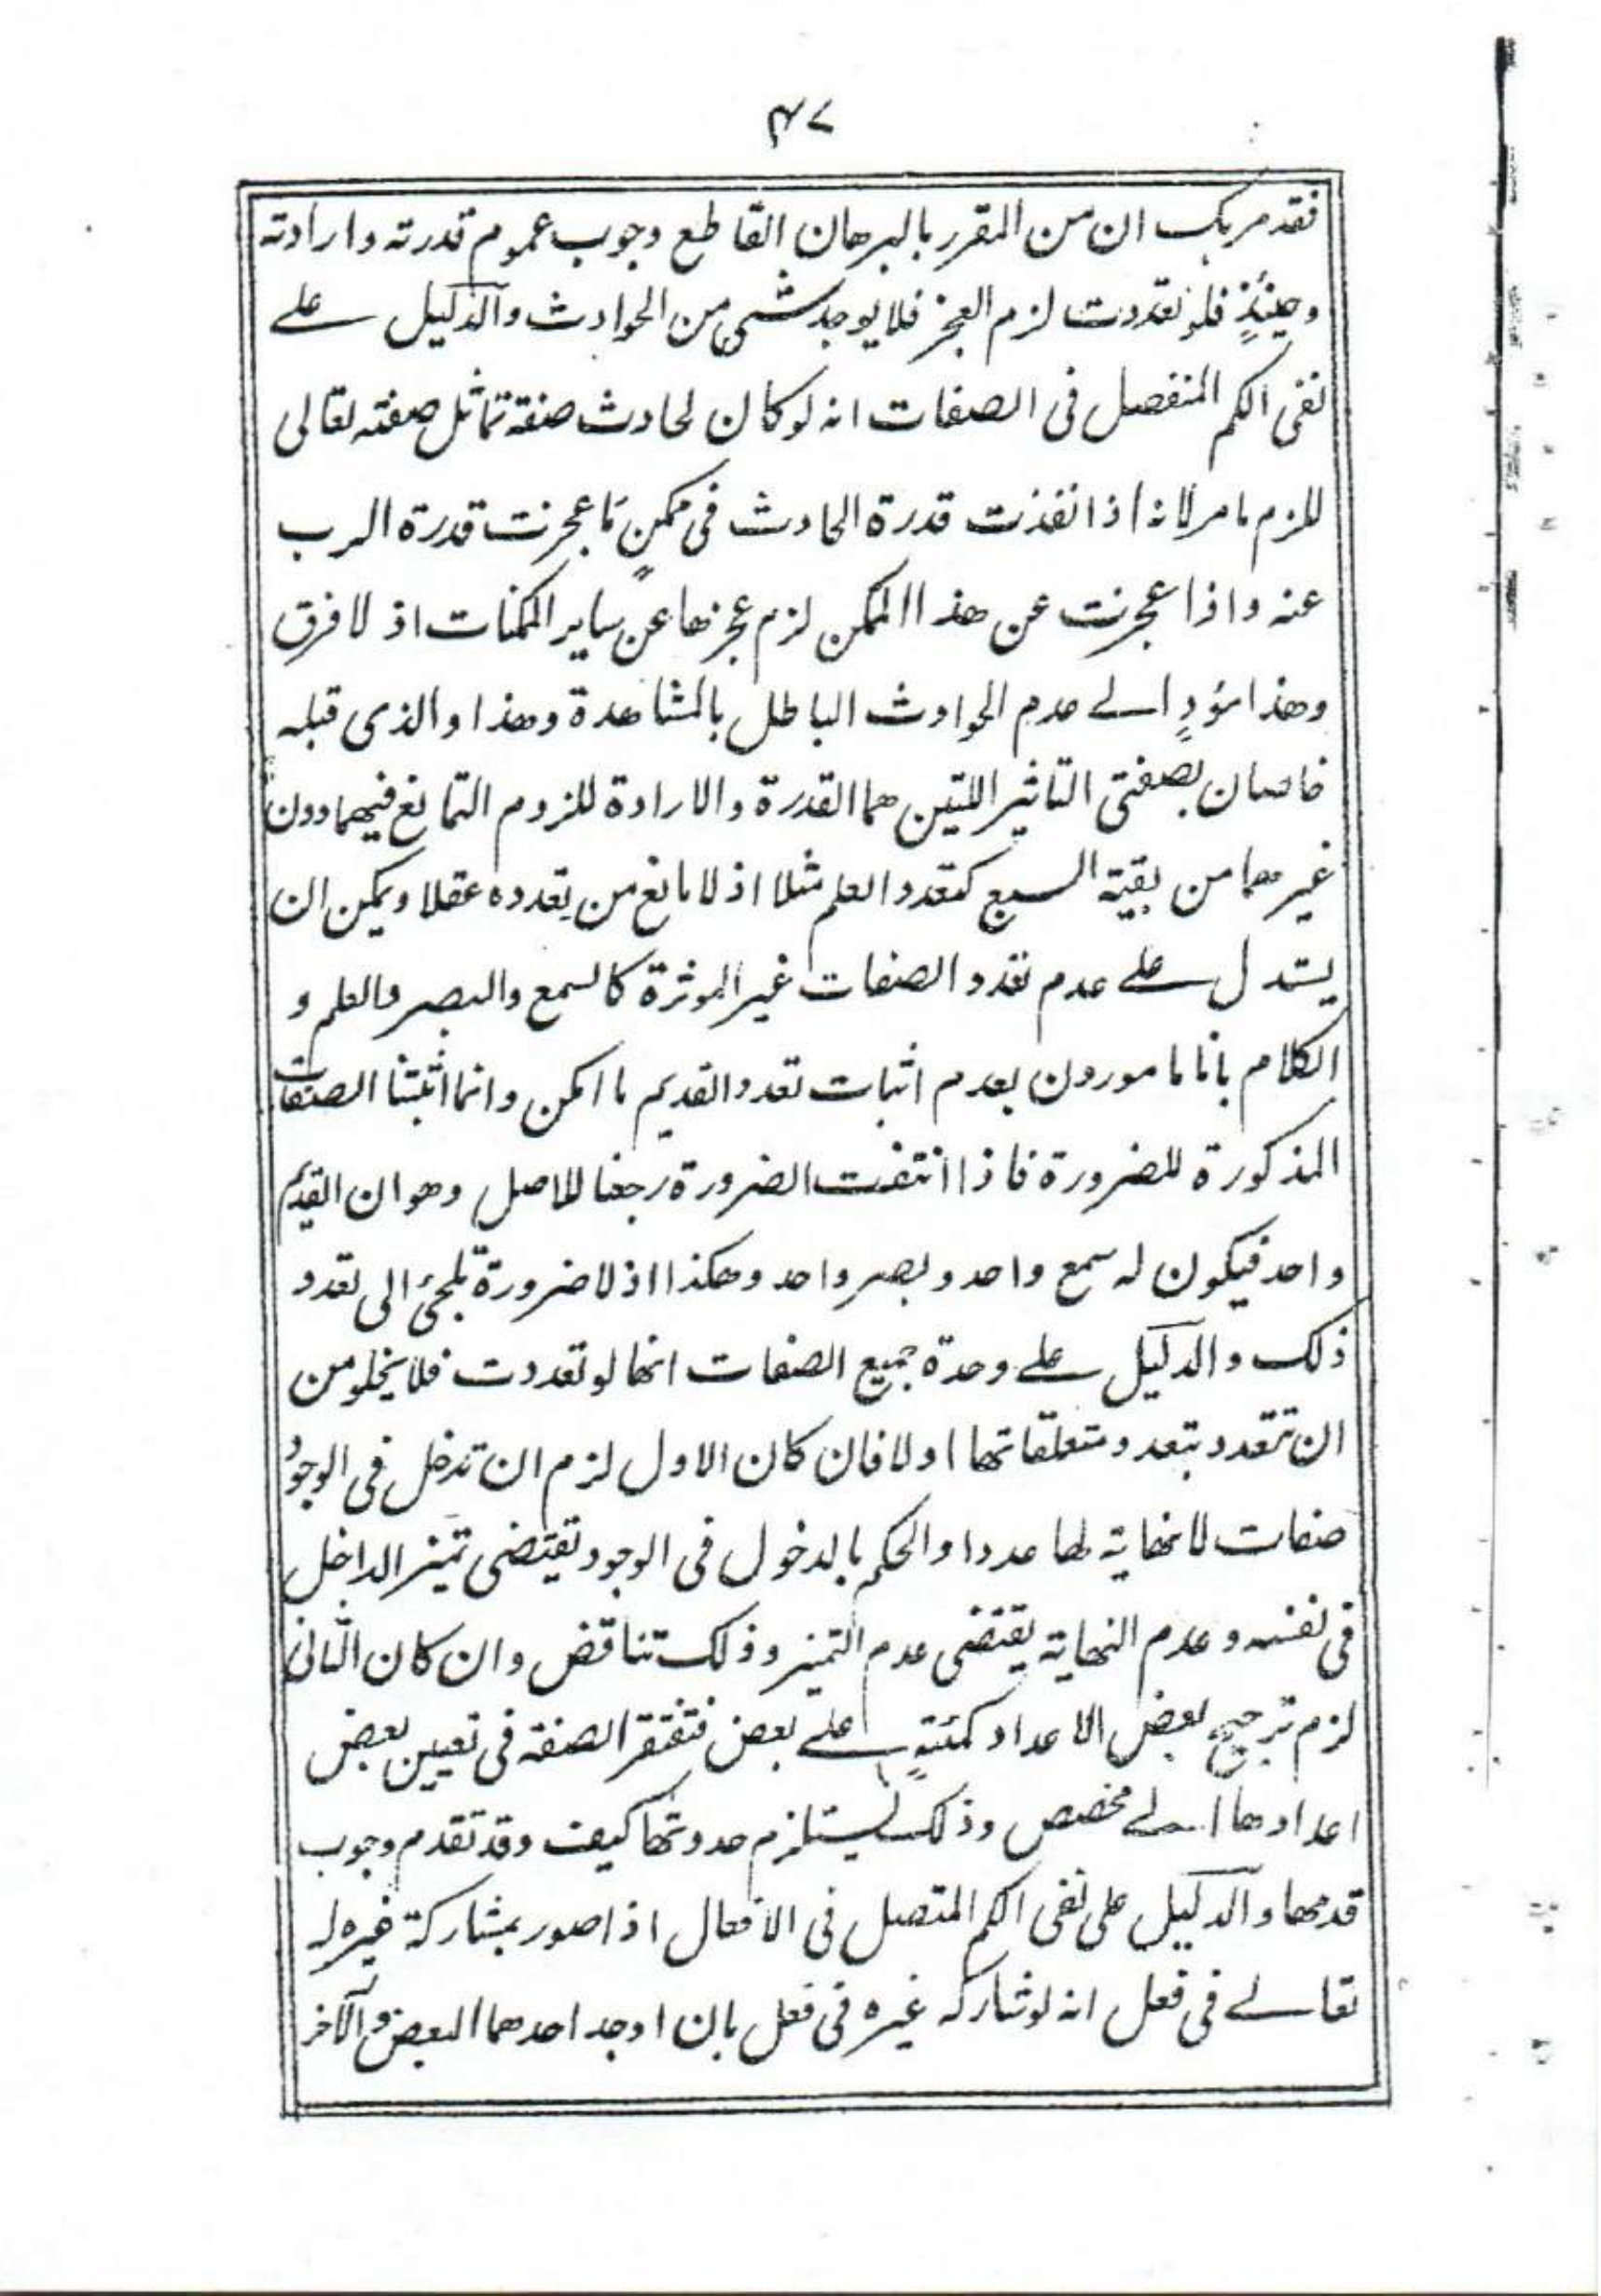 ٤٧
فقد مر بك ان من المقرر بالبرهان القاطع وجوب عموم قدرته وارادته
وحينئذٍ فلو تعددت لزم العجز فلا يوجد شىء من الحوادث والدليل على
نفى الكم المنفصل فى الصفات انه لو كان لحادث صفة تماثل صفته تعالى
للزم ما مر لانه اذا نفذت قدرة الحادث فى ممكنٍ مَا عجزت قدرة الرب
عنه واذا عجزت عن هذا الممكن لزم عجزها عن ساير الممكنات اذ لا فرق
وهذا مؤدٍ الى عدم الحوادث الباطل بالمشاهدة وهذا والذى قبله
خاصان بصفتى التاثير اللتين هما القدرة والارادة للزوم التمانع فيهما دون
غيرهما من بقية السبع كتعدد العلم مثلا اذ لا مانع من تعدده عقلا ويمكن ان
يستدل على عدم تعدد الصفات غير الموثرة كالسمع والبصر والعلم و
الكلام بانا مامورون بعدم اثبات تعدد القديم ما امكن وانما اثبتنا الصفات
المذكورة للضرورة فاذا انتفت الضرورة رجعنا للاصل وهو ان القديم
واحد فيكون له سمع واحد وبصر واحد وهكذا اذ لا ضرورة تلجئ الى تعدد
ذلك والدليل على وحدة جميع الصفات انها لو تعددت فلا يخلو من
ان تتعدد بتعدد متعلقاتها او لا فان كان الاول لزم ان تدخل فى الوجود
صفات لا نهاية لها عددا والحكم بالدخول فى الوجود يقتضى تميز الداخل
فى نفسه وعدم النهاية يقتضى عدم التميز وذلك تناقض وان كان الثانى
لزم ترجيح بعض الاعداد كمئةٍ على بعض فتفتقر الصفة فى تعيين بعض
اعدادها الى مخصص وذلك يستلزم حدوثها كيف وقد تقدم وجوب
قدمها والدليل على نفى الكم المتصل فى الافعال اذا صور بمشاركة غيره له
تعالى فى فعل انه لو شاركه غيره فى فعل بان اوجد احدهما البعض والآخر